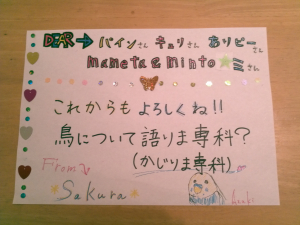 DEAR→ パインさん キュリさん ありピーさん
mameta&minto★ミさん
これからもよろしくね!!
鳥について語りま専科?
(かじりま専科)
From
Sakura